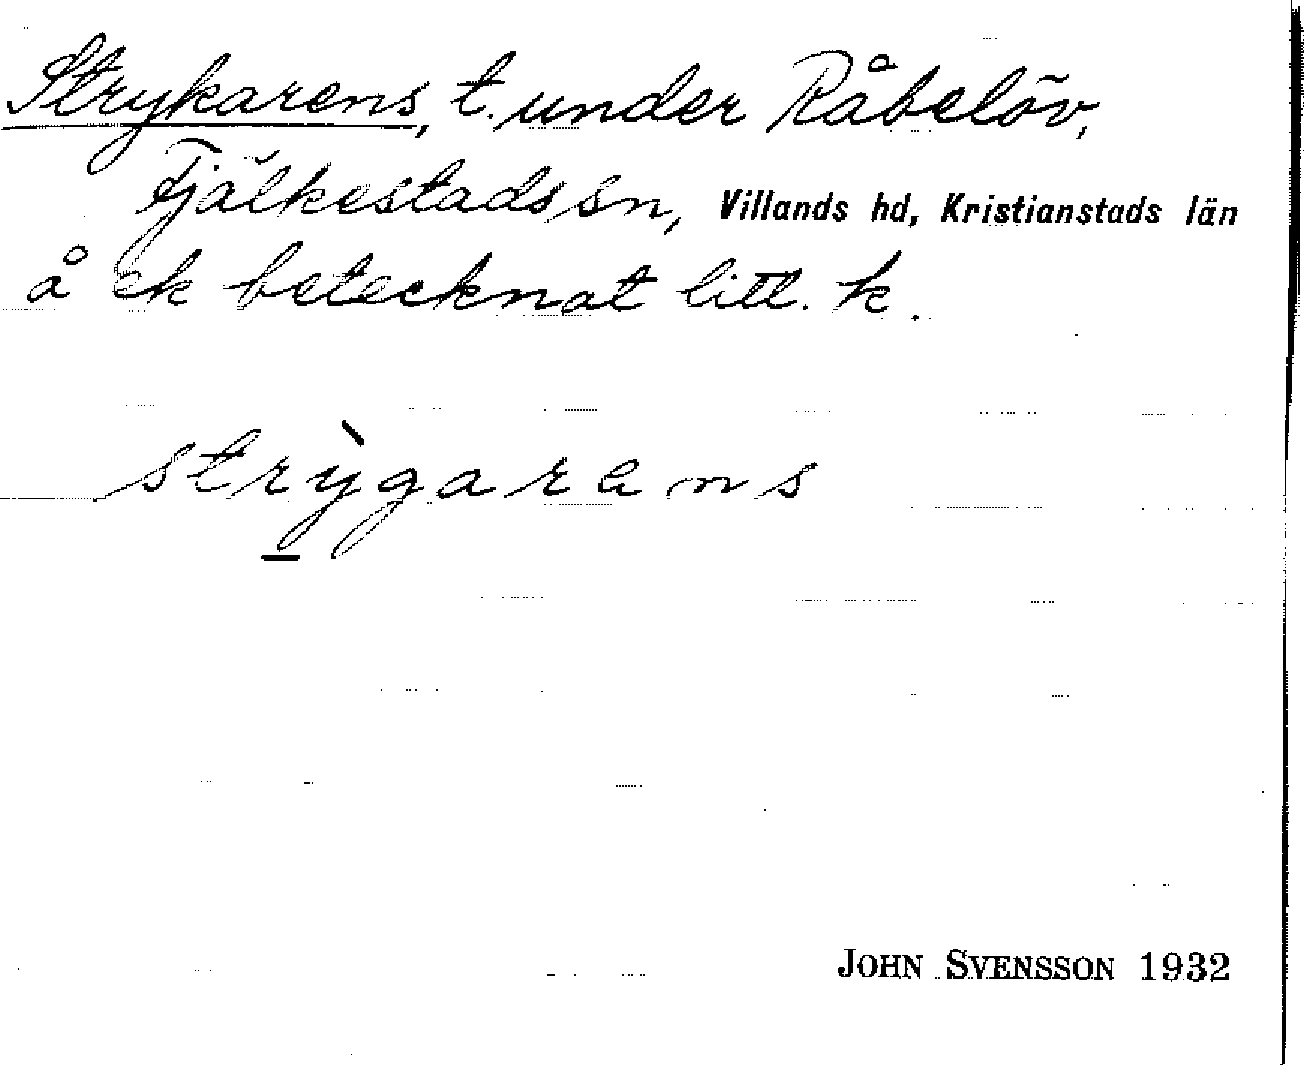 Strykarens, t. under Råbelöv,
Fjälkestads sn, Villands hd, Kristianstads län
å ek betecknat litt. k.
strỳgarans
JOHN SVENSSON 1932